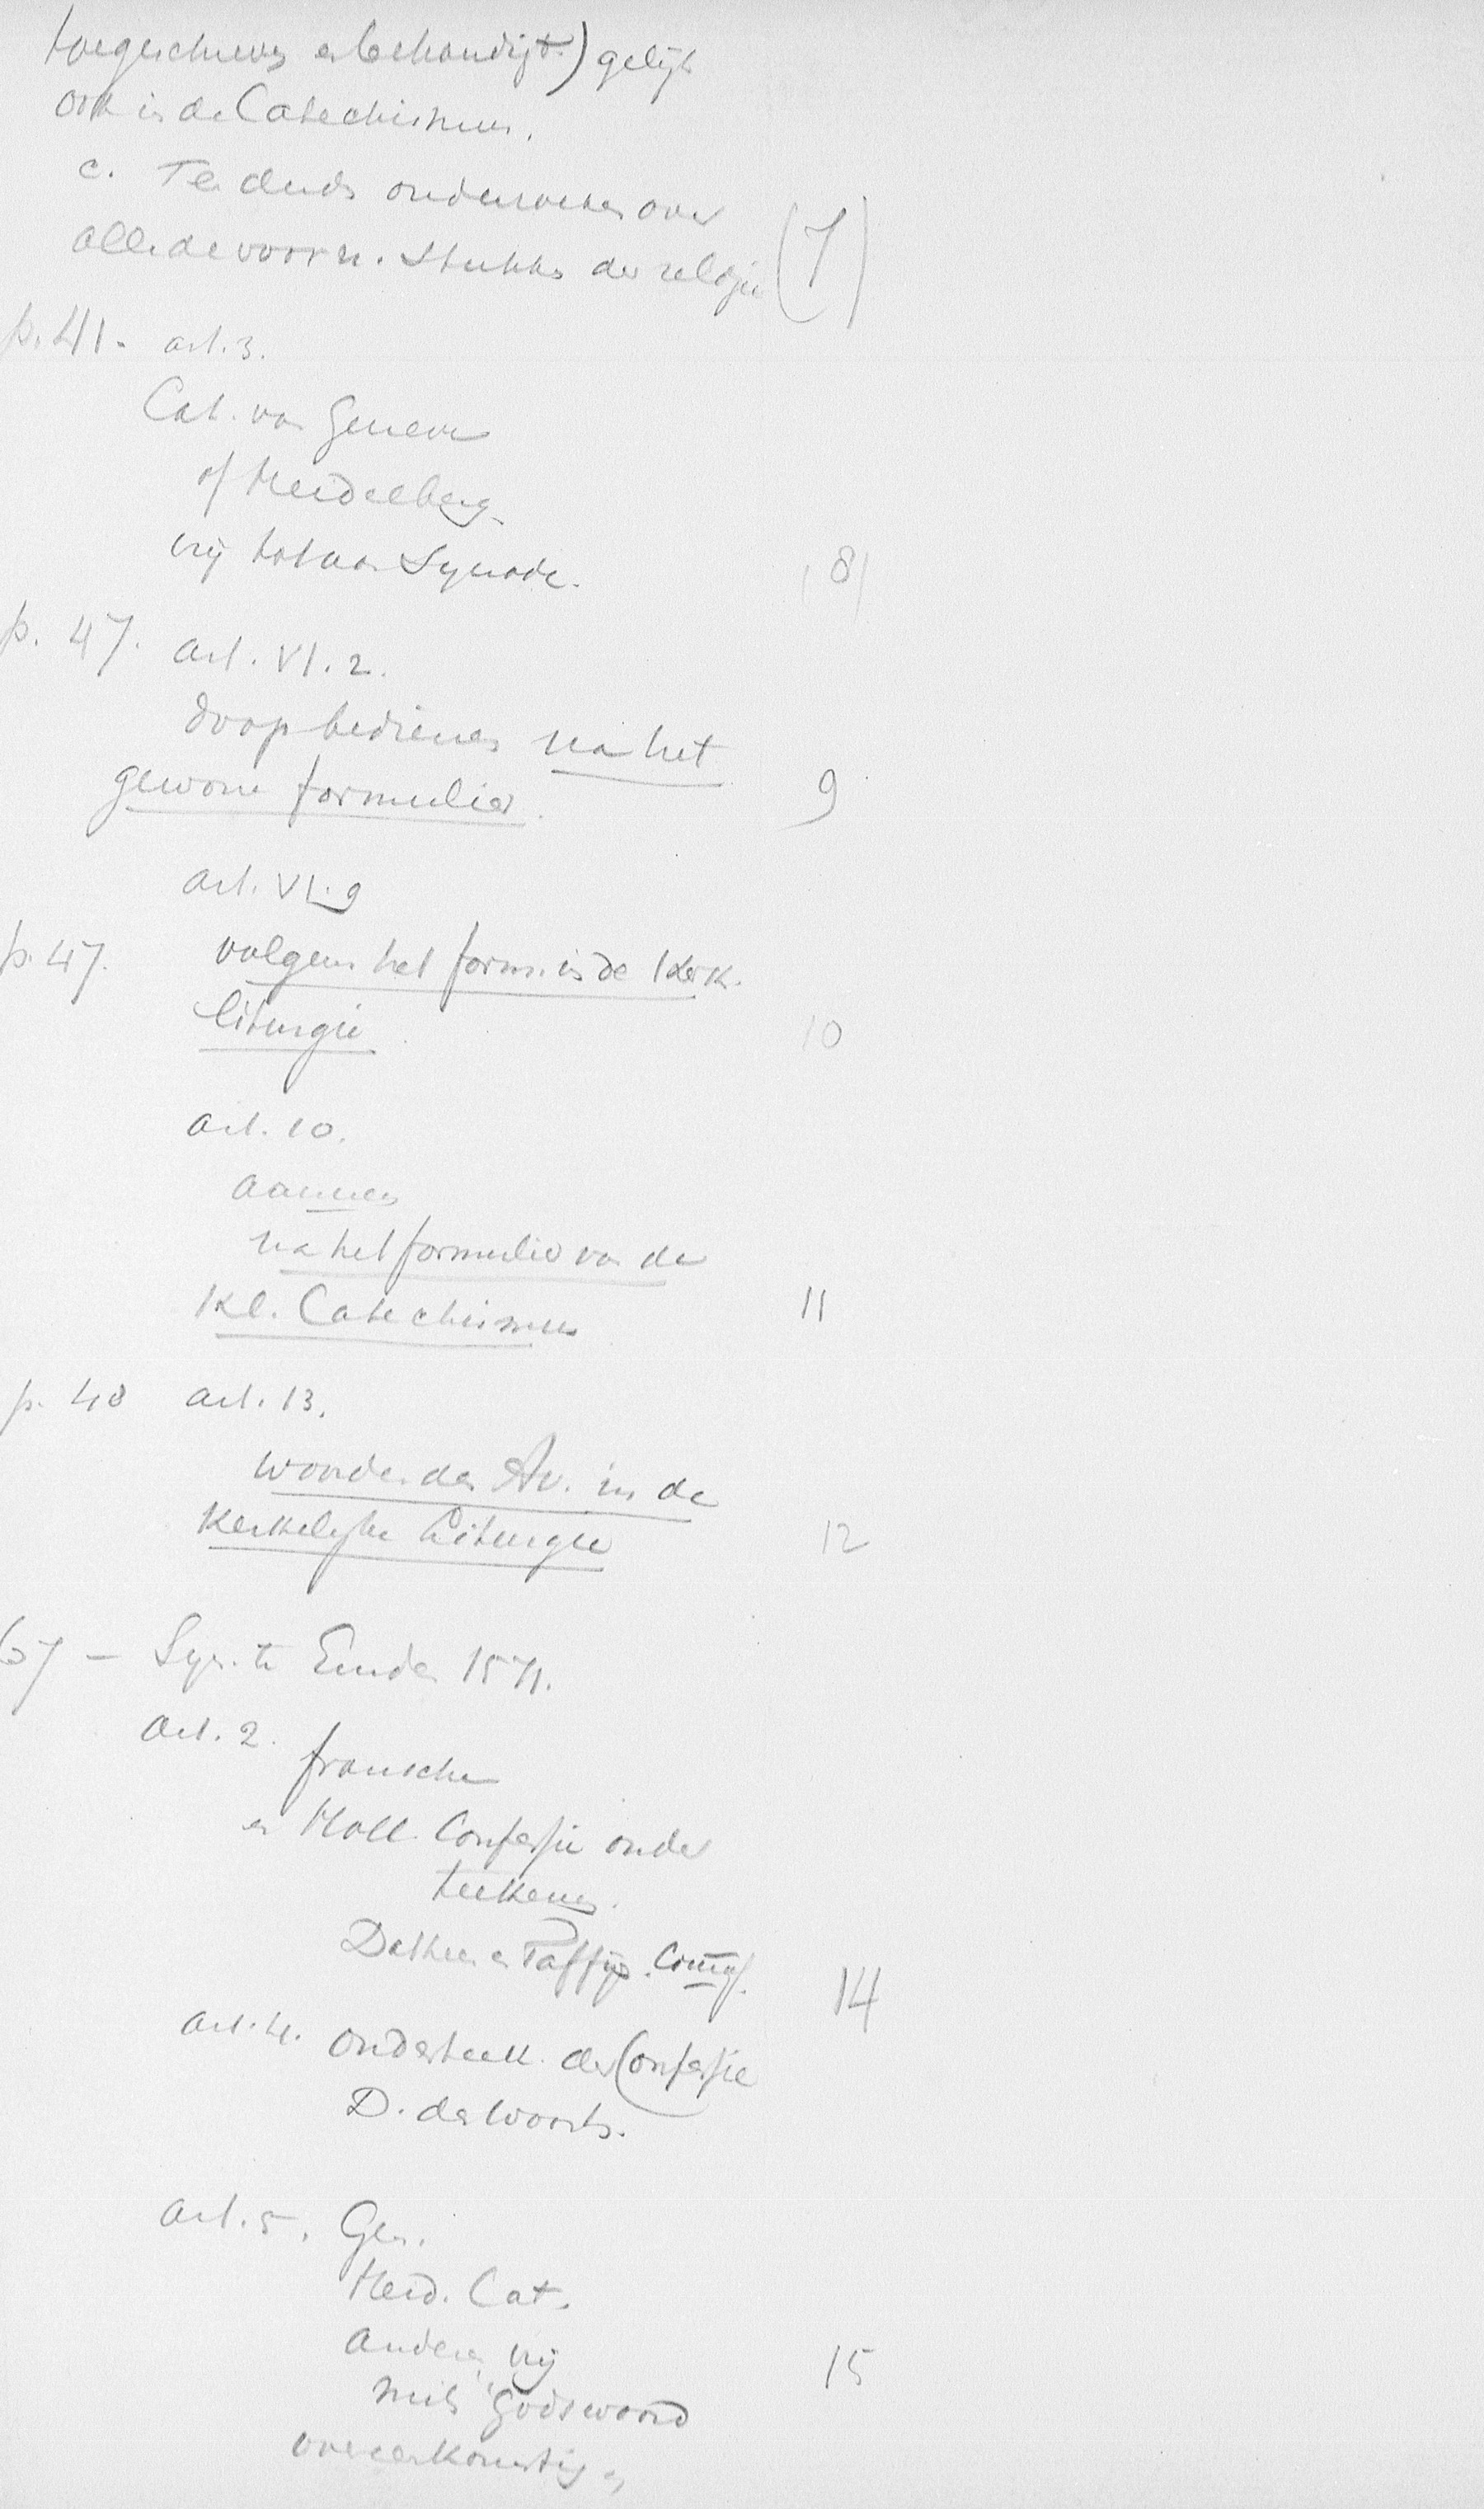 toegeschreven en behandigt) gelijk
ook in de Catechismus.
c. Ten deele onderwezen over
alle de voorn. stukken der religie (7)
p. 41. art. 3.
Cat. van Geneve
of Heidelberg
vrij tot aan Synode. (8)
p. 47. art. VI. 2.
doop bedienen na het
gewone formulier. 9
art. VI. 9
p. 47. volgens het form. in de Kerk.
liturgie 10
art. 10.
aannem
na het formulier van de
Kl. Catechismus 11
p. 48 art. 13.
woorden des Av. in de
Kerkelijke Liturgie 12
67 - Syn. te Emden 1571.
art. 2. fransche
en Holl. Confessie onder
teekenen.
Dathen en Taffijn. 14
art. 4. onderteek. der Confessie
D. des Woords.
art. 5. Gen.
Heid. Cat.
andere vrij
mits "Gods woord
overeenkomstig"
15